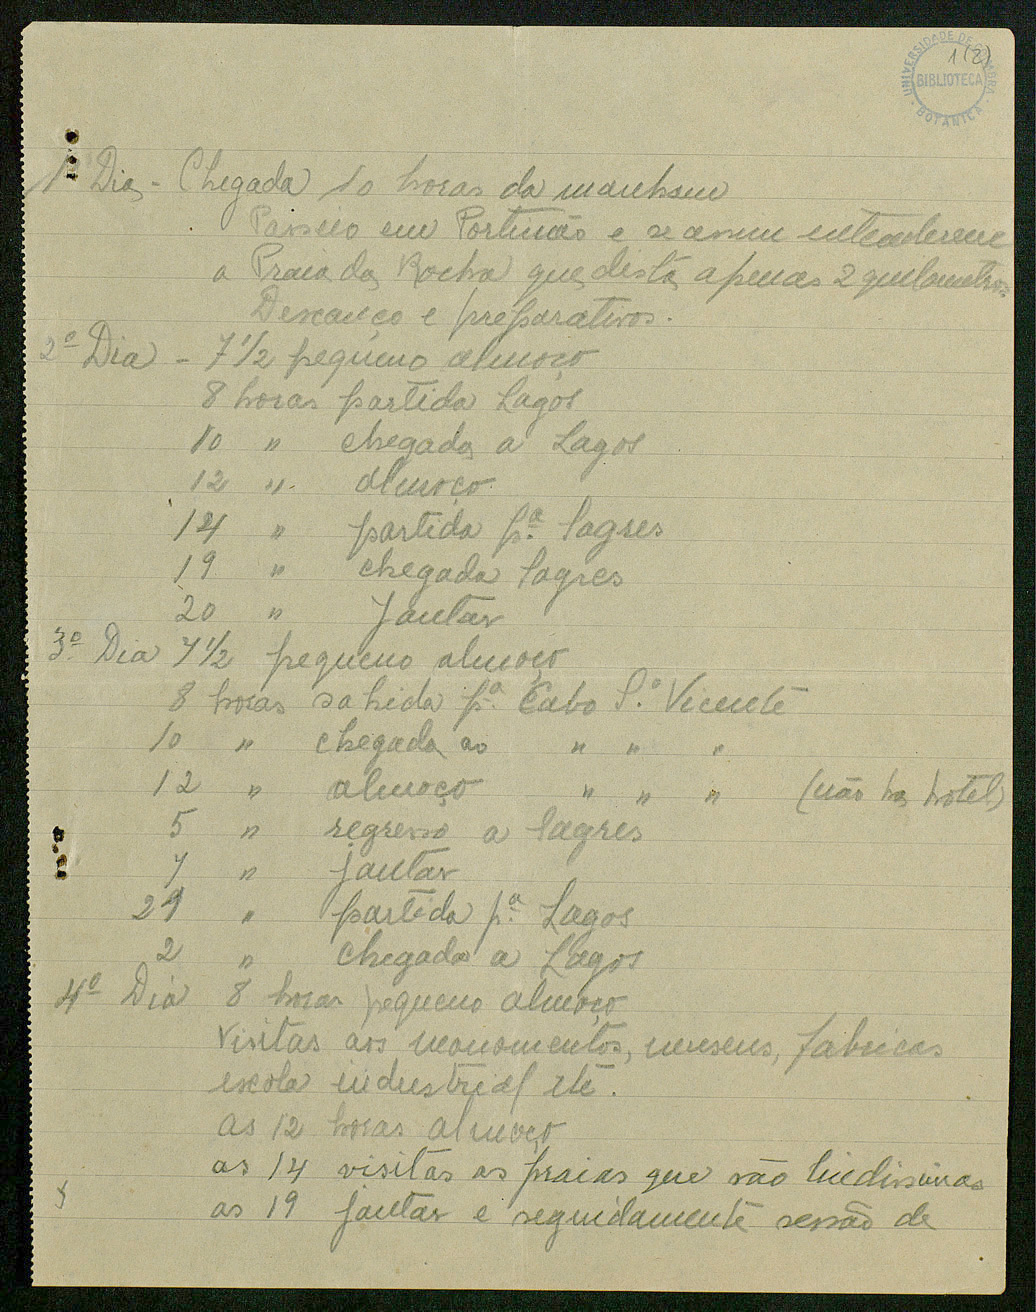 1(2)
UNIVERSIDADE DE COIMBRA
BIBLIOTECA
BOTANICA
1º Dia - Chegada 10 horas da manhan
Passeio em Portimão e se assim entenderem
a Praia da Rocha que dista apenas 2 quilometros
Descanço e preparativos.
2º Dia - 7 1/2 pequeno almoço
8 horas partida Lagos
10 " chegada a Lagos
12 " almoço
14 " partida p.ª Sagres
19 " chegada Sagres
20 " Jantar
3º Dia 7 1/2 pequeno almoço
8 horas sahida p.ª Cabo S.º Vicente
10 " chegada ao " " "
12 " almoço " " " (não ha hotel)
5 " regresso a Sagres
7 " jantar
21 " partida p.ª Lagos
2 " chegada a Lagos
4º Dia 8 horas pequeno almoço
Visitas aos monomentos, museus, fabricas
escola industrial etc.
as 12 horas almoço
as 14 visitas as praias que são lindissimas
as 19 jantar e seguidamente sessão de